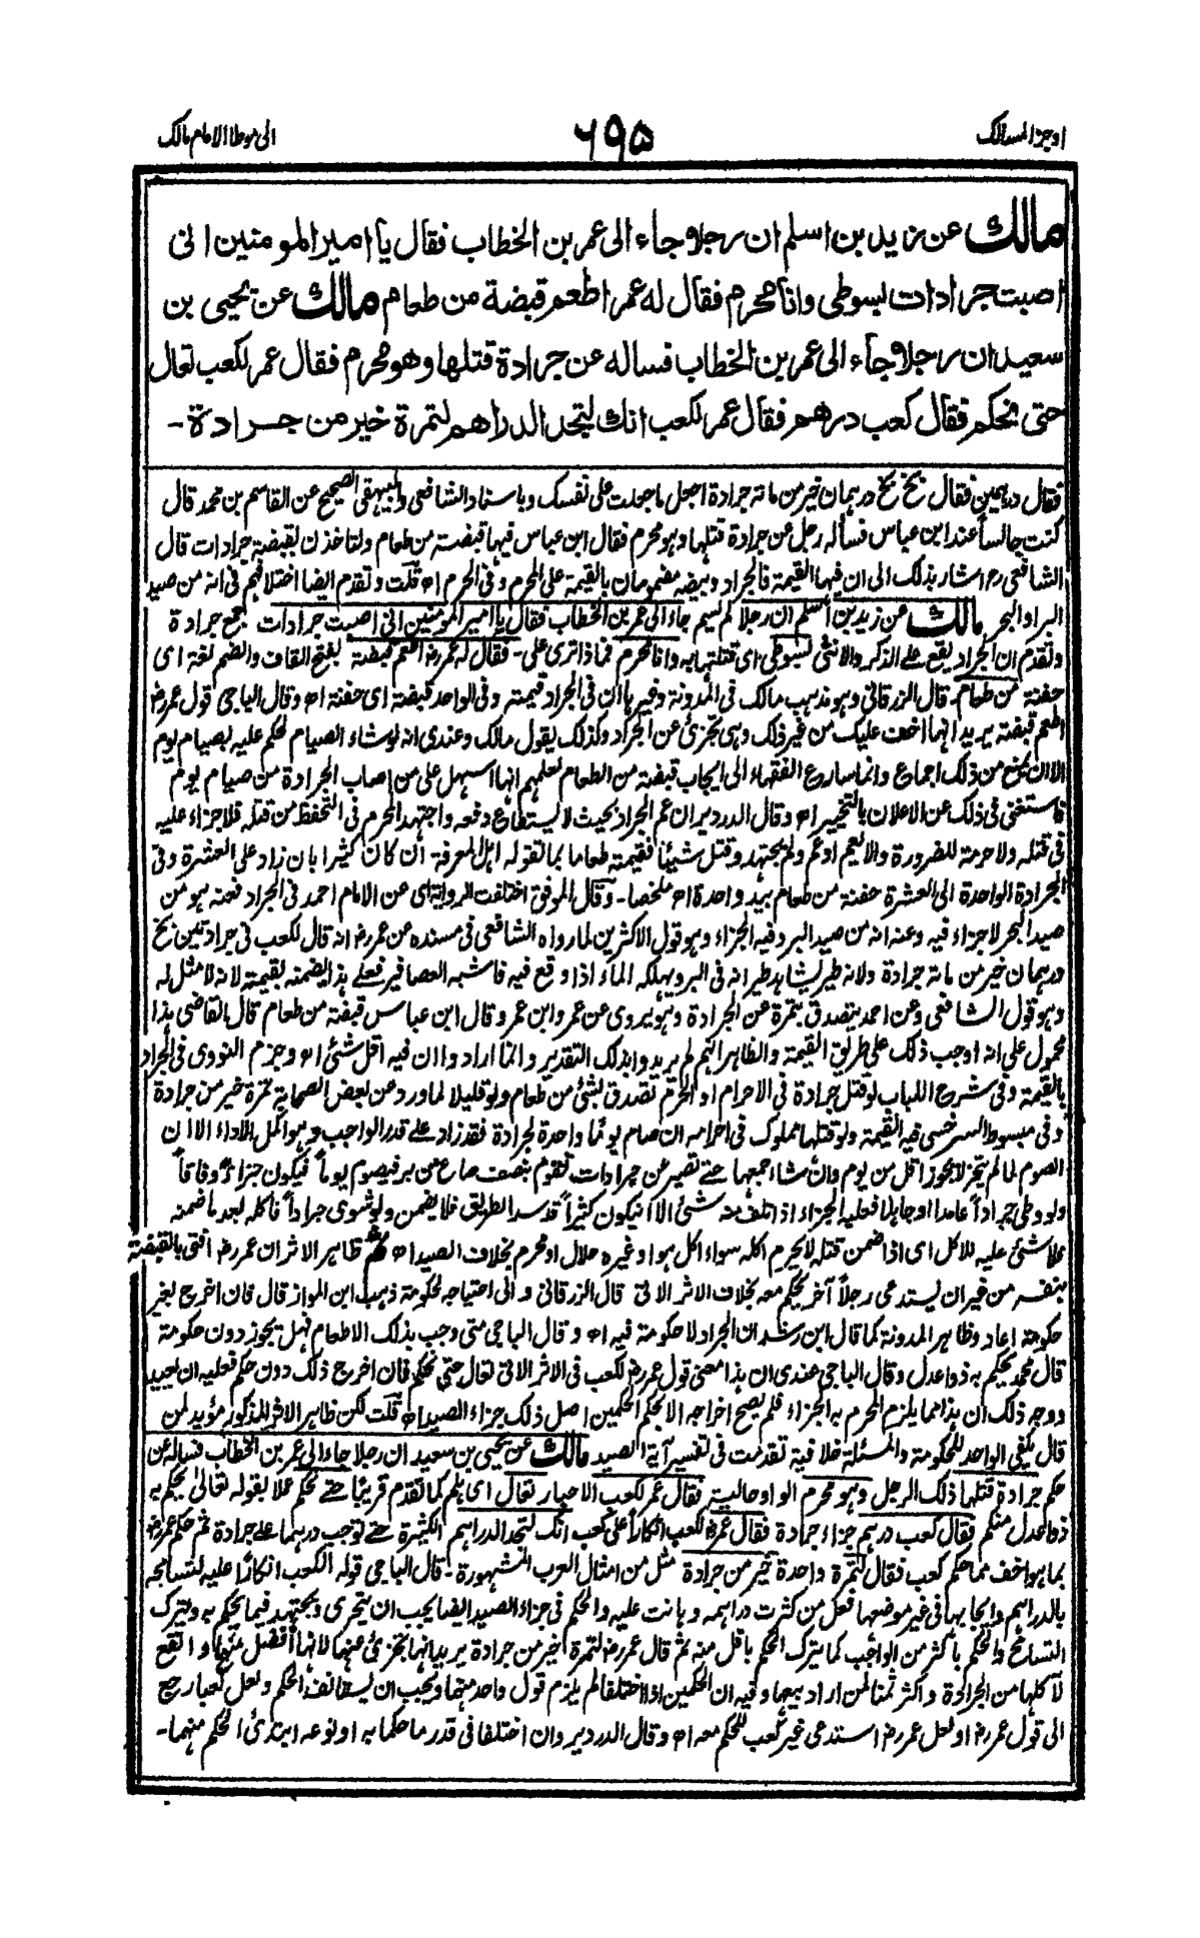 اوجز المسالك
٦٩٥
الى موطا الامام مالك
مالك عن زيد بن اسلم ان رجلا جاء الى عمر بن الخطاب فقال يا امير المومنين انى
اصبت جرادات بسوطى وانا محرم فقال له عمر اطعم قبضة من طعام مالك عن يحيى بن
سعيد ان رجلا جاء الى عمر بن الخطاب فساله عن جرادة قتلها وهو محرم فقال عمر لكعب تعال
حتى نحكم فقال كعب درهم فقال عمر لكعب انك لتجد الدراهم لتمرة خير من جرادة -
فقال درهمين فقال بخ بخ درهمان خير من مائة جرادة اجعل ما جعلت على نفسك وباسناد الشافعى والبيهقى الصحيح عن القاسم بن محمد قال
كنت جالسا عند ابن عباس فسأله رجل عن جرادة قتلها وهو محرم فقال ابن عباس فيها قبضة من طعام ولتاخذن بقبضة جرادات قال
الشافعى رح اشار بذلك الى ان فيها القيمة فالجراد وبيضه مضمومان بالقيمة على المحرم وفى الحرم اه قلت وتقدم ايضا اختلافهم فى انه من صيد
البر او البحر مالك عن زيد بن اسلم ان رجلا لم يسم جاء الى عمر بن الخطاب فقال يا امير المومنين انى اصبت جرادات جمع جرادة
وتقدم ان الجراد يقع على الذكر والانثى بسوطى اى قتلتها به وانا محرم فماذا ترى على - فقال له عمر رض اطعم قبضة بفتح القاف والضم لغة اى
حفنة من طعام قال الزرقانى وهو مذهب مالك فى المدونة وغيرها ان فى الجراد قيمته وفى الواحد قبضة اى حفنة اه وقال الباجى قول عمر رض
اطعم قبضة يريد انها اخف عليك من غير ذلك وهى تجزئ عن الجراد وكذلك يقول مالك وعندى انه لو شاء الصيام لحكم عليه بصيام يوم
الا ان يمنع من ذلك اجماع وانما سارع الفقهاء الى ايجاب قبضة من الطعام لعلمهم انها اسهل على من اصاب الجرادة من صيام يوم
فاستغنى فى ذلك عن الاعلان بالتخيير اه وقال الدردير ان عم الجراد بحيث لا يستطاع دفعه واجتهد المحرم فى التحفظ من قتله فلا جزاء عليه
فى قتله ولا حرمة للضرورة والا يعم او عم ولم يجتهد وقتل شيئا فقيمته طعاما بما تقوله اهل المعرفة ان كان كثيرا بان زاد على العشرة وفى
الجرادة الواحدة الى العشرة حفنة من طعام بيد واحدة اه ملخصا - وقال الموفق اختلفت الرواية اى عن الامام احمد فى الجراد فعنه هو من
صيد البحر لا جزاء فيه وعنه انه من صيد البر وفيه الجزاء وهو قول الاكثرين لما رواه الشافعى فى مسنده عن عمر رض انه قال لكعب فى جرادتين بخ
درهمان خير من مائة جرادة ولانه طير يشاهد طيرانه فى البر ويهلكه الماء اذا وقع فيه فاشبه العصافير فعلى هذا يضمنه بقيمته لانه لا مثل له
وهو قول الشافعى وعن احمد يتصدق بتمرة عن الجرادة وهو يروى عن عمر وابن عمر وقال ابن عباس قبضة من طعام قال القاضى هذا
محمول على انه اوجب ذلك على طريق القيمة والظاهر انهم لم يريدوا بذلك التقدير وانما ارادوا ان فيه اقل شئ اه وجزم النووى فى الجراد
بالقيمة وفى شرح اللباب لو قتل جرادة فى الاحرام او الحرم تصدق بشئ من طعام ولو قليلا لما ورد عن بعض الصحابة تمرة خير من جرادة
وفى مبسوط السرخسى فيه القيمة ولو قتلها مملوك فى احرامه ان صام يوما واحدة لجرادة فقد زاد على قدر الواجب وهو اكمل الاداء الا ان
الصوم لما لم يتجز لا يجوز اقل من يوم وان شاء جمعها حتى تصير من جرادات تقوم بنصف صاع من بر فيصوم يوما فيكون جزاءً وفاقاً
ولو وطى جراداً عامدا او جاهلا فعليه الجزاء اذا تلف منه شئ الا ان يكون كثيراً قد سد الطريق فلا يضمن ولو شوى جراداً فاكله بعد ما ضمنه
فلا شئ عليه للاكل اى اذا ضمن قتله لا يحرم اكله سواء اكل هو او غيره حلال او محرم بخلاف الصيد اه ثم ظاهر الاثر ان عمر رض افتى بالقبضة
بنفسه من غير ان يستدعى رجلاً آخر يحكم معه بخلاف الاثر الاتى قال الزرقانى و الى احتياجه لحكومة ذهب ابن المواز قال فان اخرج بغير
حكومة اعاد وظاهر المدونة كما قال ابن رشد ان الجراد لا حكومة فيه اه و قال الباجى متى وجب بذلك الاطعام فهل يجوز دون حكومة
قال محمد يحكم به ذوا عدل وقال الباجى عندى ان هذا معنى قول عمر رض لكعب فى الاثر الاتى تعال حتى نحكم فان اخرج ذلك دون حكم فعليه ان يعيد
ووجه ذلك ان هذا مما يلزم المحرم به الجزاء فلم يصح اخراجه الا بحكم الحكمين اصل ذلك جزاء الصيد اه قلت لكن ظاهر الاثر المذكور مؤيد لمن
قال يكفى الواحد للحكومة والمسئلة خلافية تقدمت فى تفسير آية الصيد مالك عن يحيى بن سعيد ان رجلا جاء الى عمر بن الخطاب فساله عن
حكم جرادة قتلها ذلك الرجل وهو محرم الواو حالية فقال عمر لكعب الاحبار تعال اى هلم كما تقدم قريبا حتى نحكم عملا بقوله تعالى يحكم به
ذوا عدل منكم فقال كعب درهم جزاء جرادة فقال عمر رض لكعب انكاراً على كعب انك لتجد الدراهم الكثيرة حتى توجب درهما على جرادة ثم حكم عمر رض
بما هو اخف مما حكم كعب فقال لتمرة واحدة خير من جرادة مثل من امثال العرب المشهورة - قال الباجى قوله لكعب انكارا عليه لتسامحه
بالدراهم وايجابها فى غير موضعها فعل من كثرت دراهمه وهانت عليه والحكم فى جزاء الصيد ايضا يجب ان يتحرى ويجتهد فيما يحكم به ويترك
التسامح والحكم بأكثر من الواجب كما يترك الحكم باقل منه ثم قال عمر رض لتمرة خير من جرادة يريد انها تجزئ عنها لانها افضل منها و انفع
لآكلها من الجرادة واكثر ثمنا لمن اراد بيعها وفيه ان الحكمين اذا اختلفا لم يلزم قول واحد منهما ويجب ان يستانف الحكم ولعل كعبا رجع
الى قول عمر رض او لعل عمر رض استدعى غير كعب للحكم معه اه وقال الدردير وان اختلفا فى قدر ما حكما به او نوعه ابتدئ الحكم منهما -